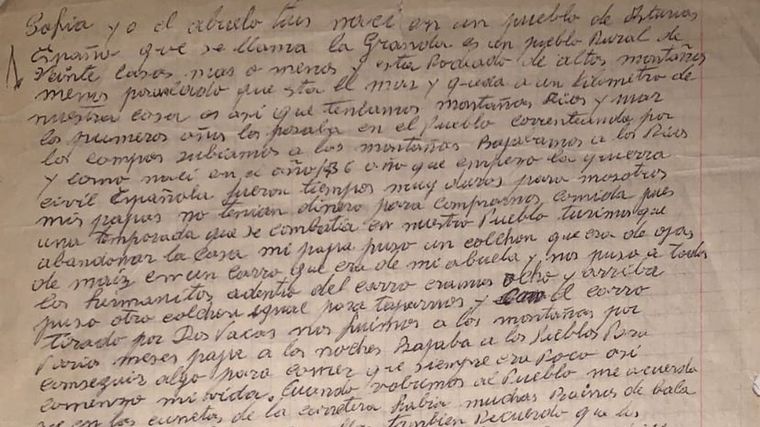 Sofia yo el abuelo Luis naci en un pueblo de Asturias
España que se llama la Granda es un pueblo Rural de
Veinte Casas mas o menos y esta Rodeado de altas montañas
menos por el lado que esta el mar y queda a un kilometro de
nuestra casa es asi que teniamos montañas Rios y mar
los primeros años los pasaba en el Pueblo correteando por
los campos subiamos a las montañas Bajabamos a los Rios
y como naci en el año 1936 año que empeso la guerra
civil Española fueron tiempos muy duros para nosotros
mis papas no tenian dinero para comprarnos comida pues
una temporada que se combatia en nuestro Pueblo tuvimos que
abandonar la Casa mi papa puso un colchon que era de ojas
de maiz en un Carro que era de mi abuela y nos puso a todos
los hermanitos adentro del carro eramos ocho y arriba
puso otro colchon igual para taparnos y el carro
tirado por Dos Vacas nos fuimos a las montañas por
Varios meses papa a las noches Bajaba a los Pueblos Para
conseguir algo para comer que siempre era Poco asi
comenzo mi vida. Cuando al Pueblo me acuerdo
en las cunetas de la carretera Rabia muchas Bainas de bala
tambien Recuerdo que los